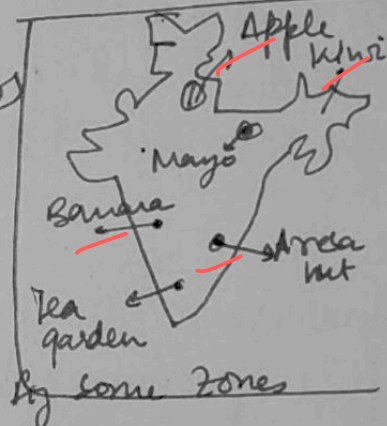 Apple
Kiwi
Mayo
Banana
Areca
nut
Tea
garden
some Zones